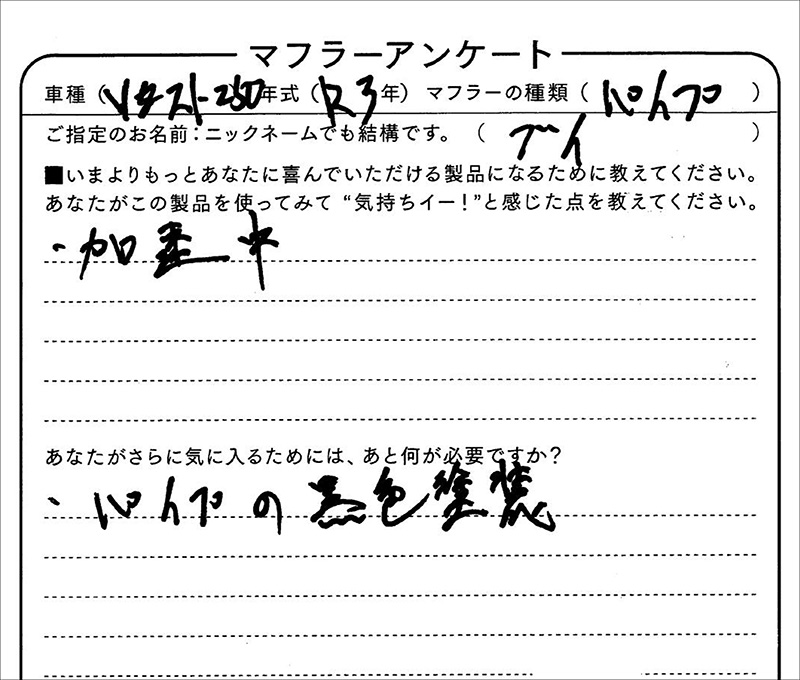 マフラーアンケート
車種（Vダスト-250年式（R3年）マフラーの種類（パイプ）
ご指定のお名前：ニックネームでも結構です。（ブイ）
■いまよりもっとあなたに喜んでいただける製品になるために教えてください。
あなたがこの製品を使ってみて“気持ちイー！”と感じた点を教えてください。
・加速中
あなたがさらに気に入るためには、あと何が必要ですか？
・パイプの黒色塗装